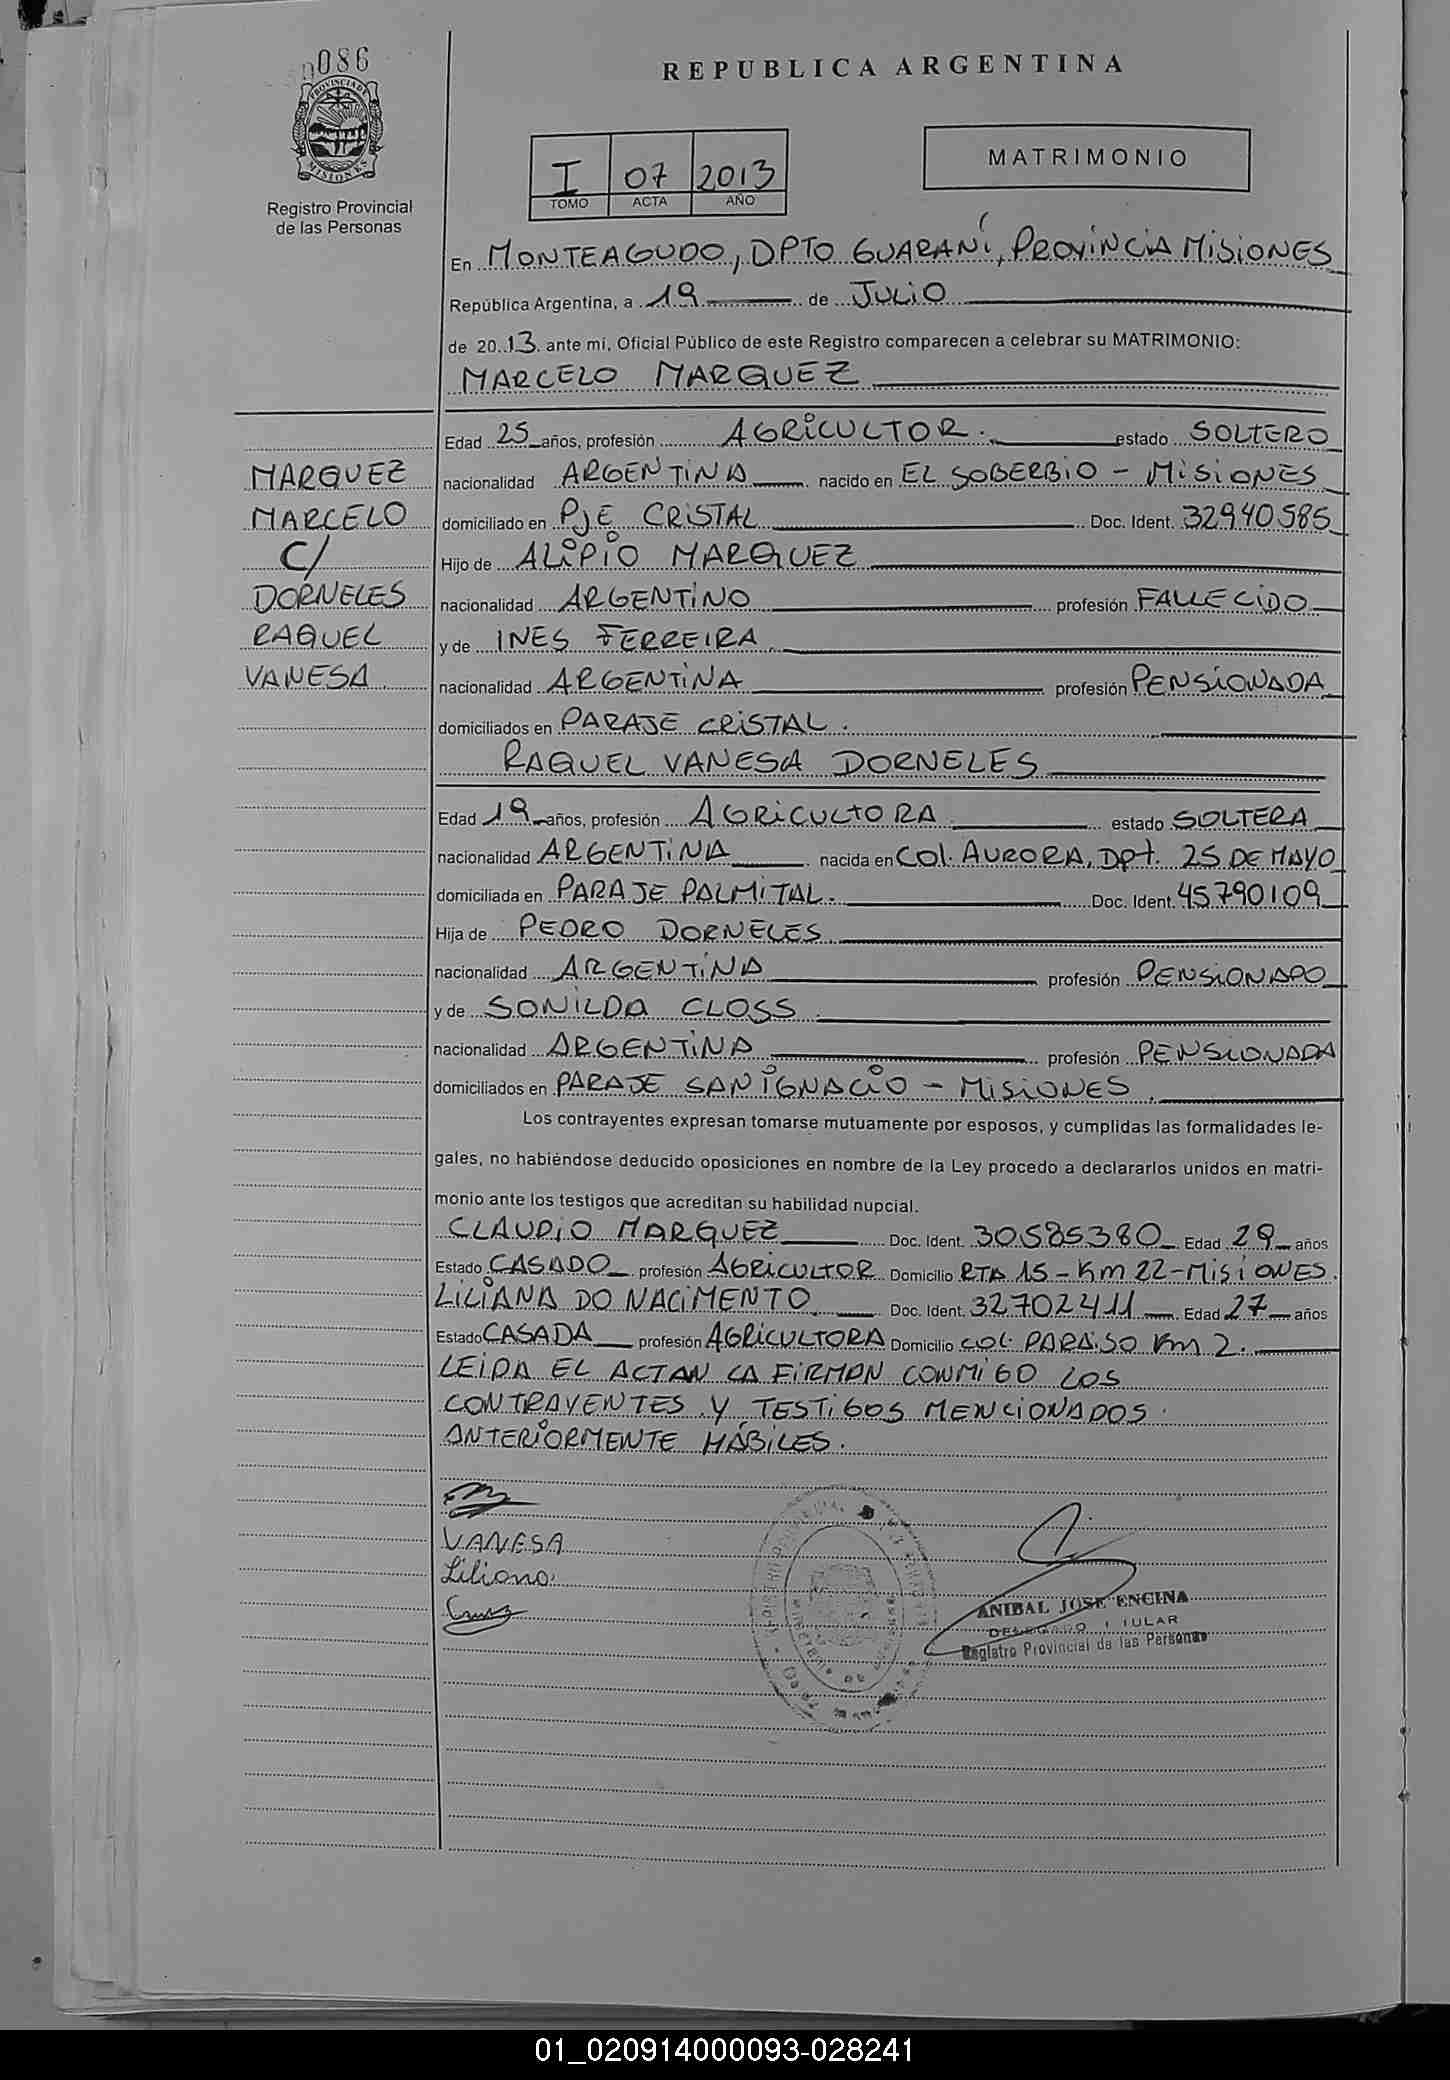 086
PROVINCIA DE
MISIONES
Registro Provincial
de las Personas
REPUBLICA ARGENTINA
I 07 2013
TOMO ACTA AÑO
MATRIMONIO
En MONTEAGUDO, DPTO GUARANÍ, PROVINCIA MISIONES
República Argentina, a 19 de JULIO
de 2013 ante mi, Oficial Público de este Registro comparecen a celebrar su MATRIMONIO:
MARCELO MARQUEZ
Edad 25 años, profesión AGRICULTOR. estado SOLTERO
MARQUEZ
nacionalidad ARGENTINA nacido en EL SOBERBIO - MISIONES
MARCELO
domiciliado en PJE CRISTAL Doc. Ident. 32940585
C/
Hijo de ALIPIO MARQUEZ
DORNELES
nacionalidad ARGENTINO profesión FALLECIDO
RAQUEL
y de INES FERREIRA
VANESA
nacionalidad ARGENTINA profesión PENSIONADA
domiciliados en PARAJE CRISTAL.
RAQUEL VANESA DORNELES
Edad 19 años, profesión AGRICULTORA estado SOLTERA
nacionalidad ARGENTINA nacida en COL. AURORA, DPT. 25 DE MAYO
domiciliada en PARAJE PALMITAL. Doc. Ident. 45790109
Hija de PEDRO DORNELES
nacionalidad ARGENTINA profesión PENSIONADO
y de SONILDA CLOSS
nacionalidad ARGENTINA profesión PENSIONADA
domiciliados en PARAJE SAN IGNACIO - MISIONES.
Los contrayentes expresan tomarse mutuamente por esposos, y cumplidas las formalidades le-
gales, no habiéndose deducido oposiciones en nombre de la Ley procedo a declararlos unidos en matri-
monio ante los testigos que acreditan su habilidad nupcial.
CLAUDIO MARQUEZ Doc. Ident. 30585380 Edad 29 años
Estado CASADO profesión AGRICULTOR Domicilio RTA 15 - Km 22 - MISIONES.
LILIANA DO NACIMENTO Doc. Ident. 32702411 Edad 27 años
Estado CASADA profesión AGRICULTORA Domicilio COL. PARAISO Km 2.
LEIDA EL ACTAN LA FIRMAN CONMIGO LOS
CONTRAYENTES Y TESTIGOS MENCIONADOS
ANTERIORMENTE HÁBILES.
VANESA
Liliana
ANIBAL JOSE ENCINA
DELEGADO TITULAR
Registro Provincial de las Personas
01_020914000093-028241